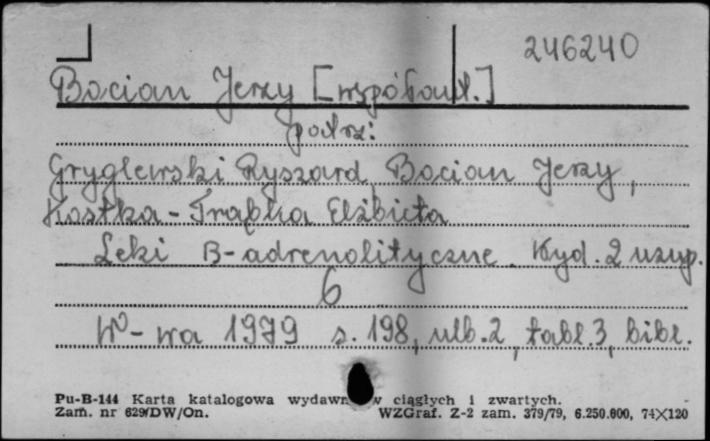 246240
Bocian Jerzy [współaut.]
patrz:
Gryglewski Ryszard, Bocian Jerzy,
Kostka-Trąbka Elżbieta
Leki B-adrenolityczne. Wyd. 2 uzup.
6
W-wa 1979 s. 198, nlb. 2, tabl. 3, bibl.
Pu-B-144 Karta katalogowa wydawn w ciągłych i zwartych.
Zam. nr 629/DW/On. WZGraf. Z-2 zam. 379/79, 6.250.000, 74X120